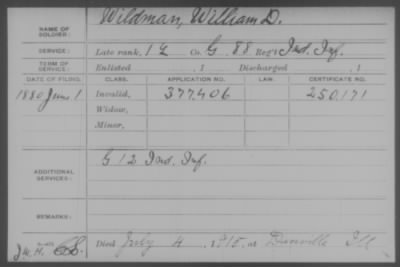 NAME OF SOLDIER: Wildman, William D.
SERVICE: Late rank, Co. G, 88 Reg't Ind. Inf.
TERM OF SERVICE: Enlisted , 1 Discharged , 1
DATE OF FILING. CLASS. APPLICATION NO. LAW. CERTIFICATE NO.
1880 June 1 Invalid, 377.406 250.171
Widow,
Minor,
ADDITIONAL SERVICES: G 12 Ind. Inf.
REMARKS:
Died July 4, 1915, at Danville Ill
J.W.H.